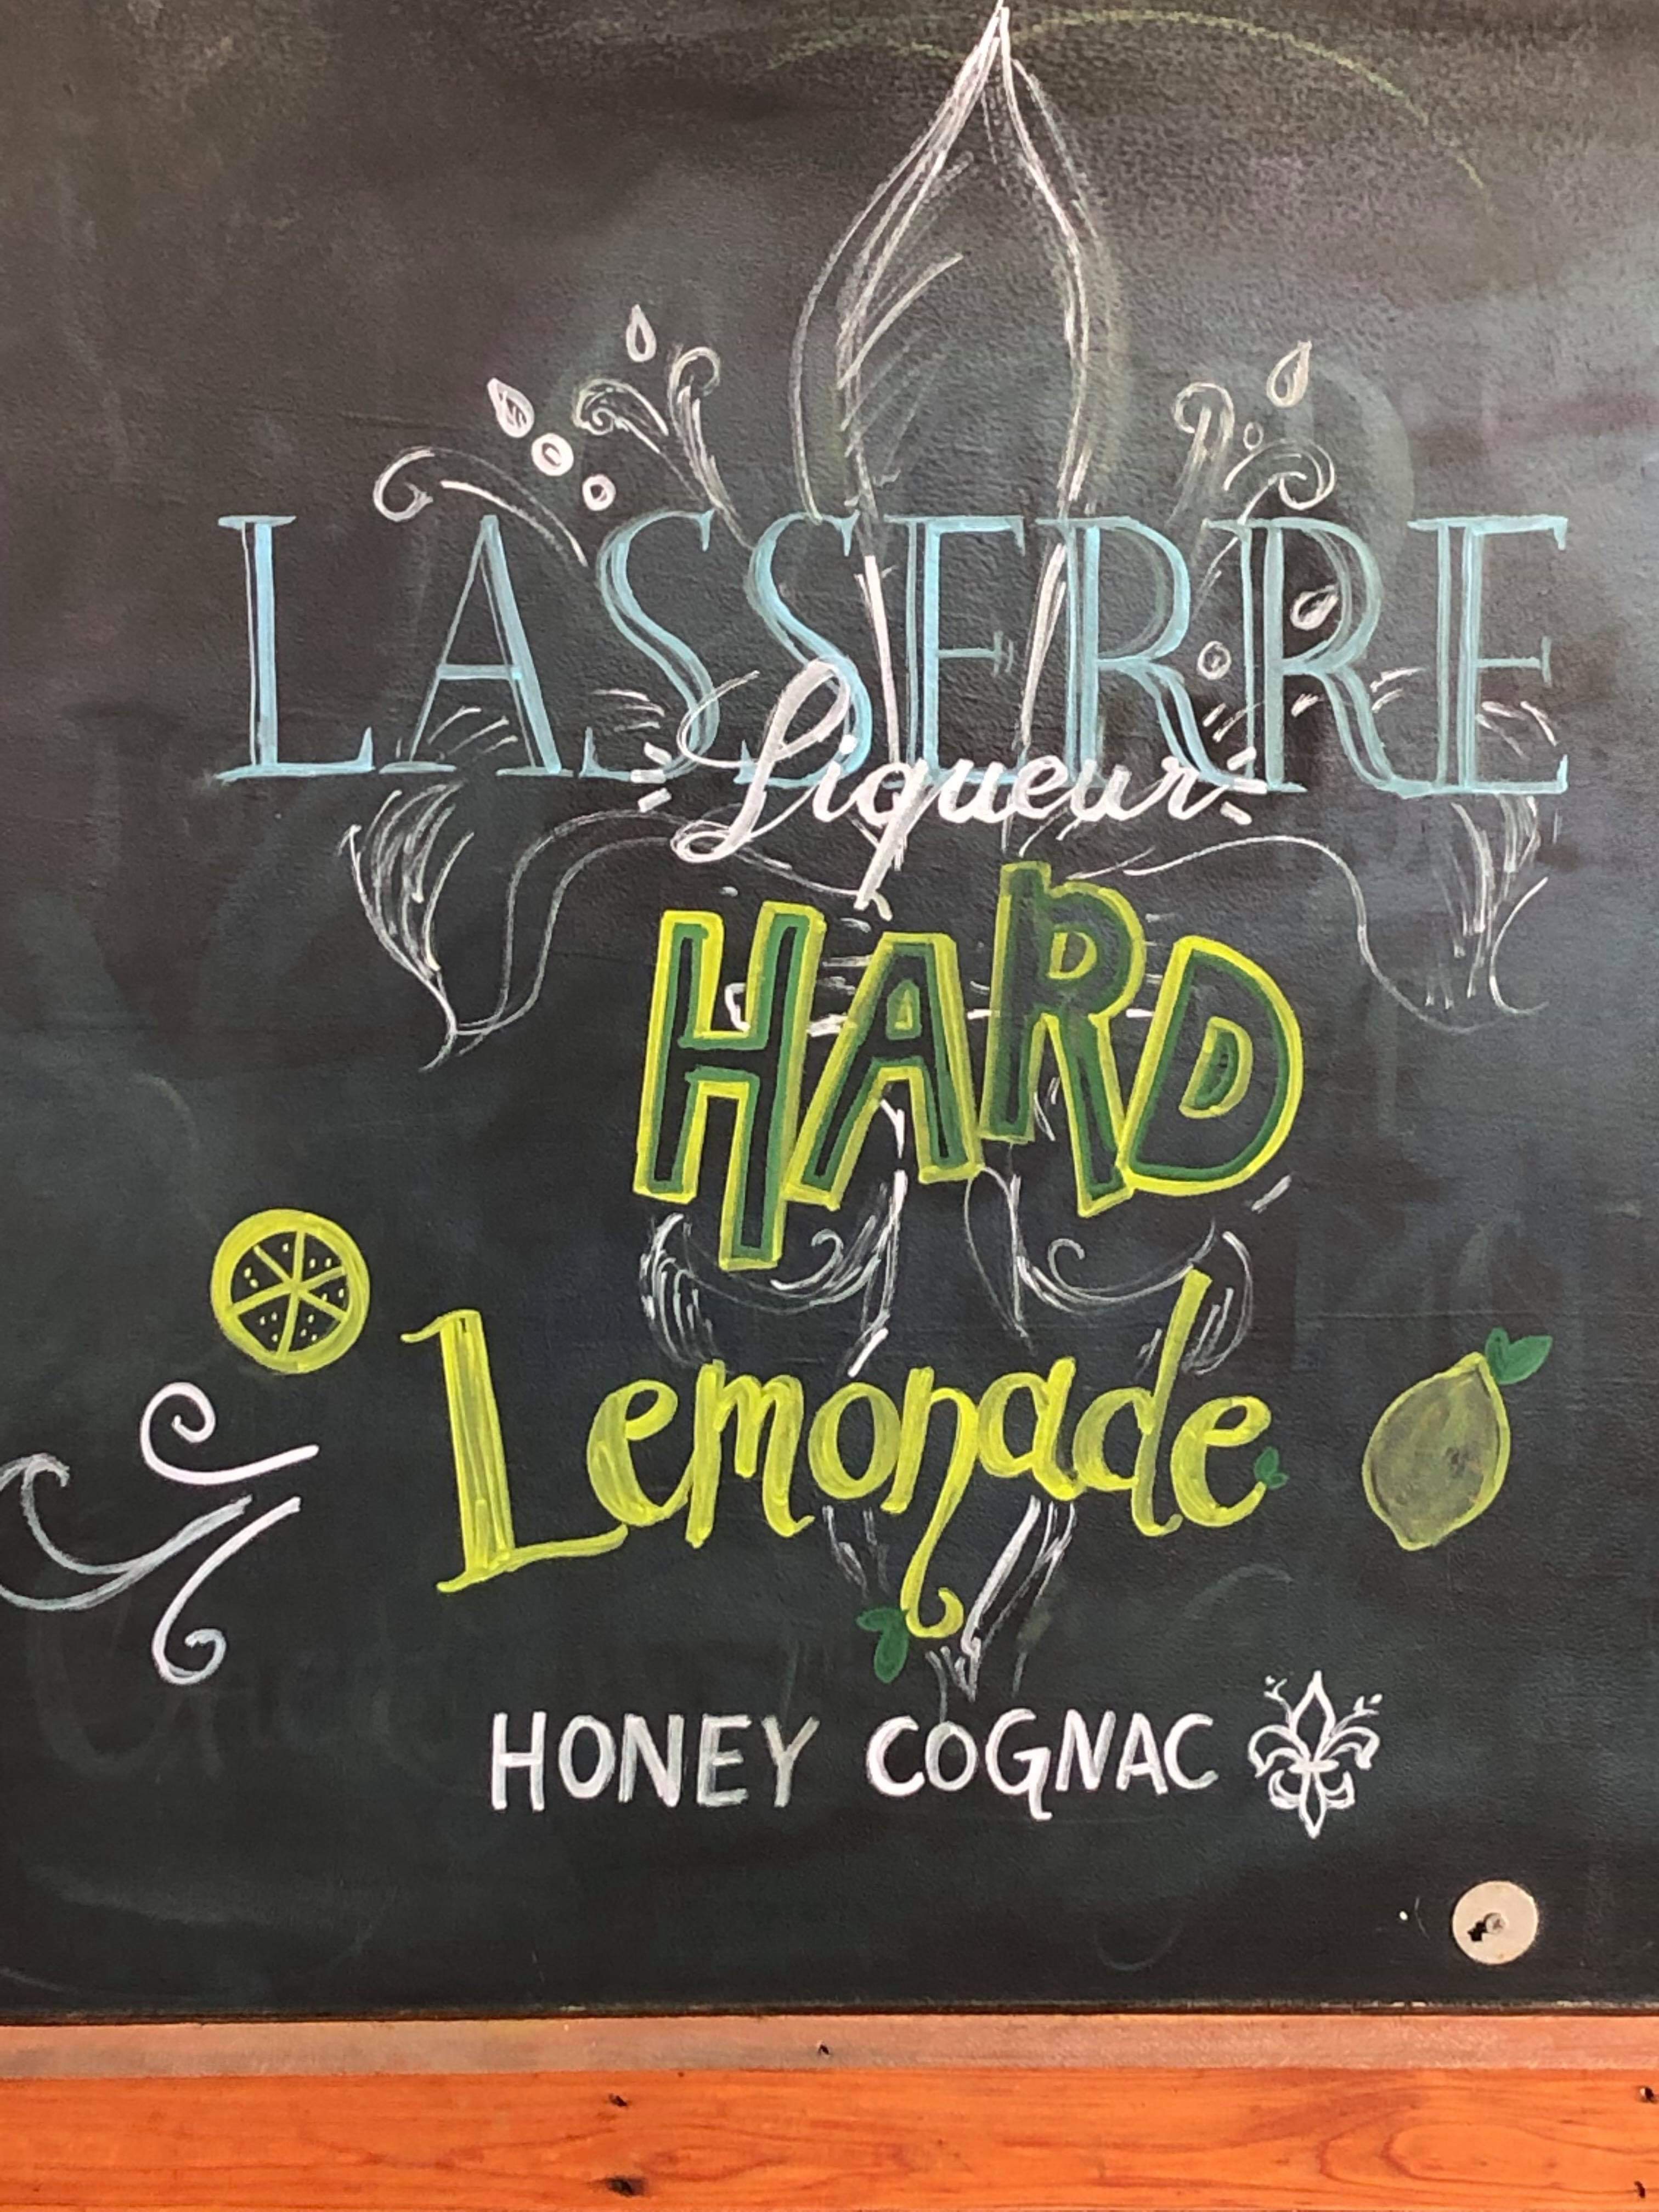 LASSERRE
Liqueur
HARD
Lemonade
HONEY COGNAC